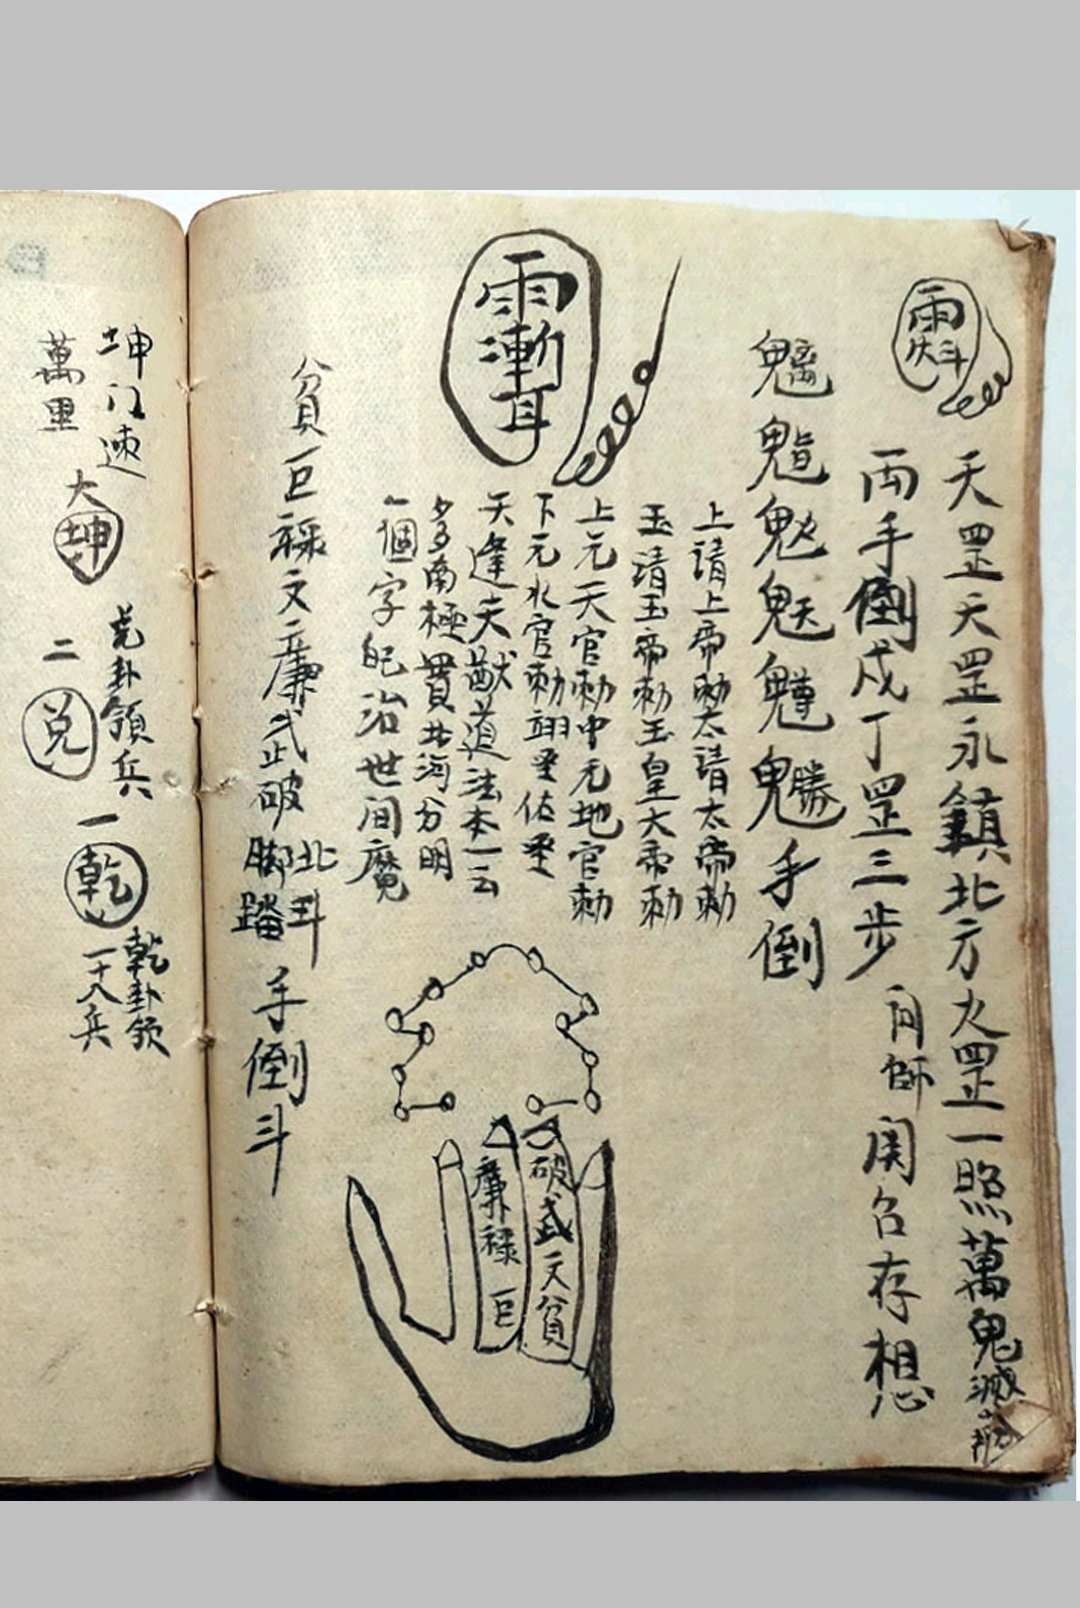 天罡天罡永鎮北方火罡一照萬鬼滅
兩手倒戌丁罡三步
向師
閗名存想
手倒
上請上帝勅太請太帝勅
玉請玉帝勅玉皇大帝勅
上元天官勅中元地官勅
下元水官勅翊聖佑聖
雨漸耳
天蓬天猷道法本一云
南極貫北河分明
個字
治世间魔
貧巨祿文廉武破
北斗
脚踏
手倒斗
破武文貧
廉祿巨
坤门速
萬里
大坤
兌卦領兵
二兌
一乾
乾卦领
一十八兵